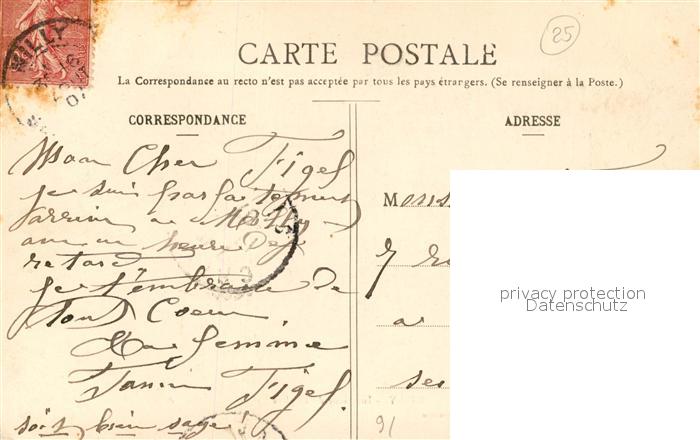 25
CARTE POSTALE
La Correspondance au recto n'est pas acceptée par tous les pays étrangers. (Se renseigner à la Poste.)
CORRESPONDANCE
ADRESSE
Mon Cher Figef
je suis parfaitement
arrivée a Mailly
avec une heure de
retard
je t'embrasse de
tout Coeur
Ta femme
Figef
sois bien sage!
Mons
7
a
privacy protection
Datenschutz
91